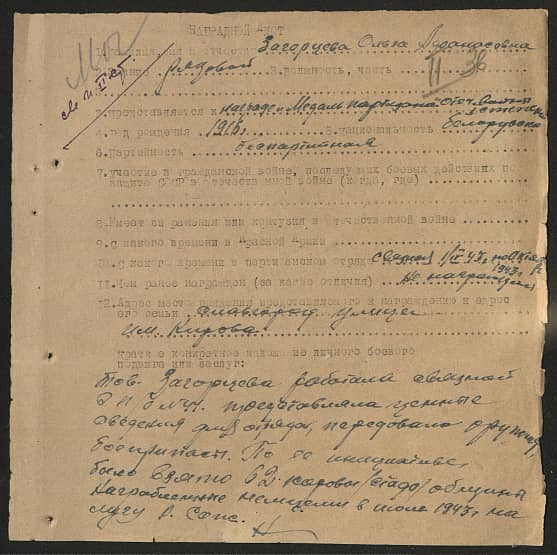 НАГРАДНОЙ ЛИСТ
1. Фамилия, имя и отчество Загорцева Ольга Афанасовна
2. Звание рядовой 3. Должность, часть
II 38
3. Представляется к награде "Медаль партизана Отеч. Войны" II степени
4. Год рождения 1918г. 5. Национальность белорусска
6. Партийность беспартийная
7. Участие в гражданской войне, последующих боевых действиях по
защите СССР и отечественной войне (когда, где)
8. Имеет ли ранения или контузии в отечественной войне
9. С какого времени в Красной Армии
10. С какого времени в партизанском отряде связная 43г. по
1943г.
11. Чем ранее награжден (за какие отличия) не награждена
12. Адрес место представляемого к награждению и адрес
его семьи улица
им. Кирова
Краткое конкретное изложение личного боевого
подвига или заслуг:
Тов. Загорцова работала связной
представляла ценные
сведения для отряда, передовала оружие,
боеприпасы. По ее инициативе,
было взято 62 коровы /стадо/
награбленные немцами в июле 1943г. на
лугу р. Сож.